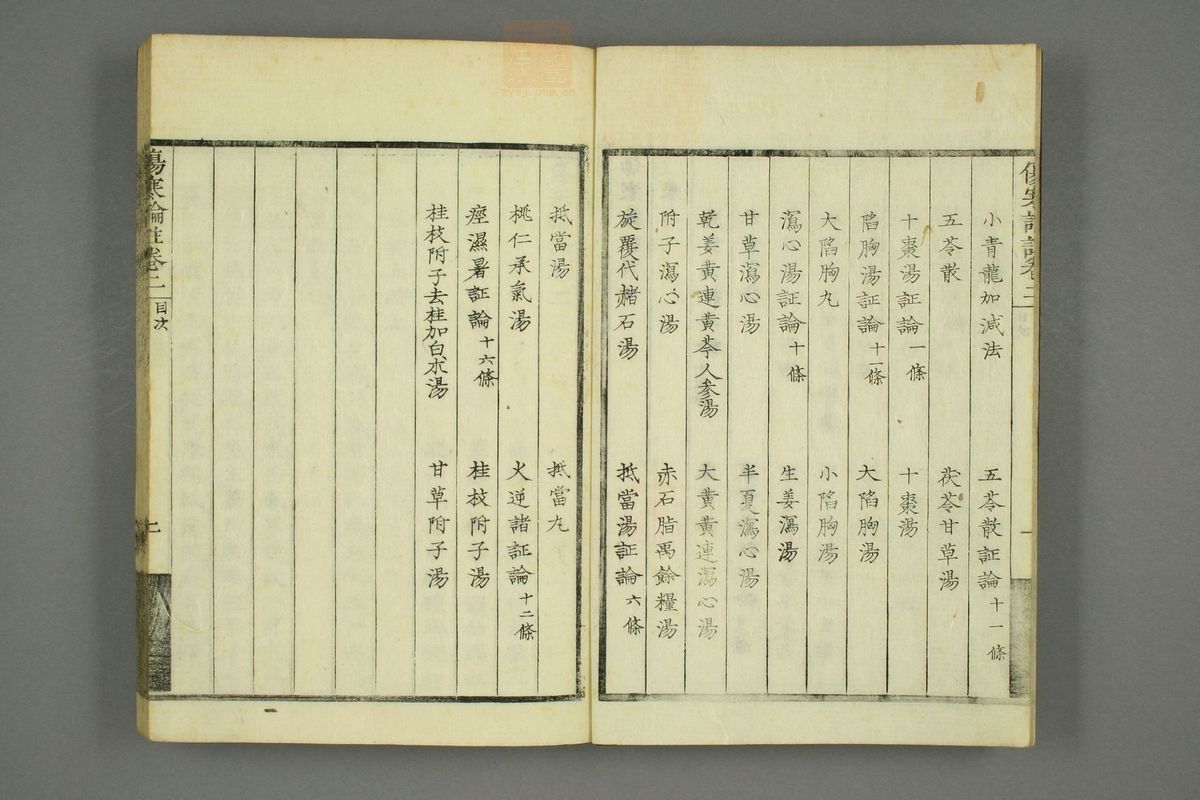 小青龍加減法　五苓散証論十一條
五苓散　茯苓甘草湯
十棗湯証論一條　十棗湯
陷胸湯証論十一條　大陷胸湯
大陷胸九　小陷胸湯
瀉心湯証論十條　生姜瀉湯
甘草瀉心湯　半夏瀉心湯
乾姜黄連黄芩人參湯　大黄黄連瀉心湯
附子瀉心湯　赤石脂禹餘糧湯
旋覆代赭石湯　抵當湯証論六條
抵當湯　抵當九
桃仁承氣湯　火逆諸証論十二條
痙濕暑証論十六條　桂枝附子湯
桂枝附子去桂加白朮湯　甘草附子湯
傷寒論註卷二　目次
zysj.com.cn